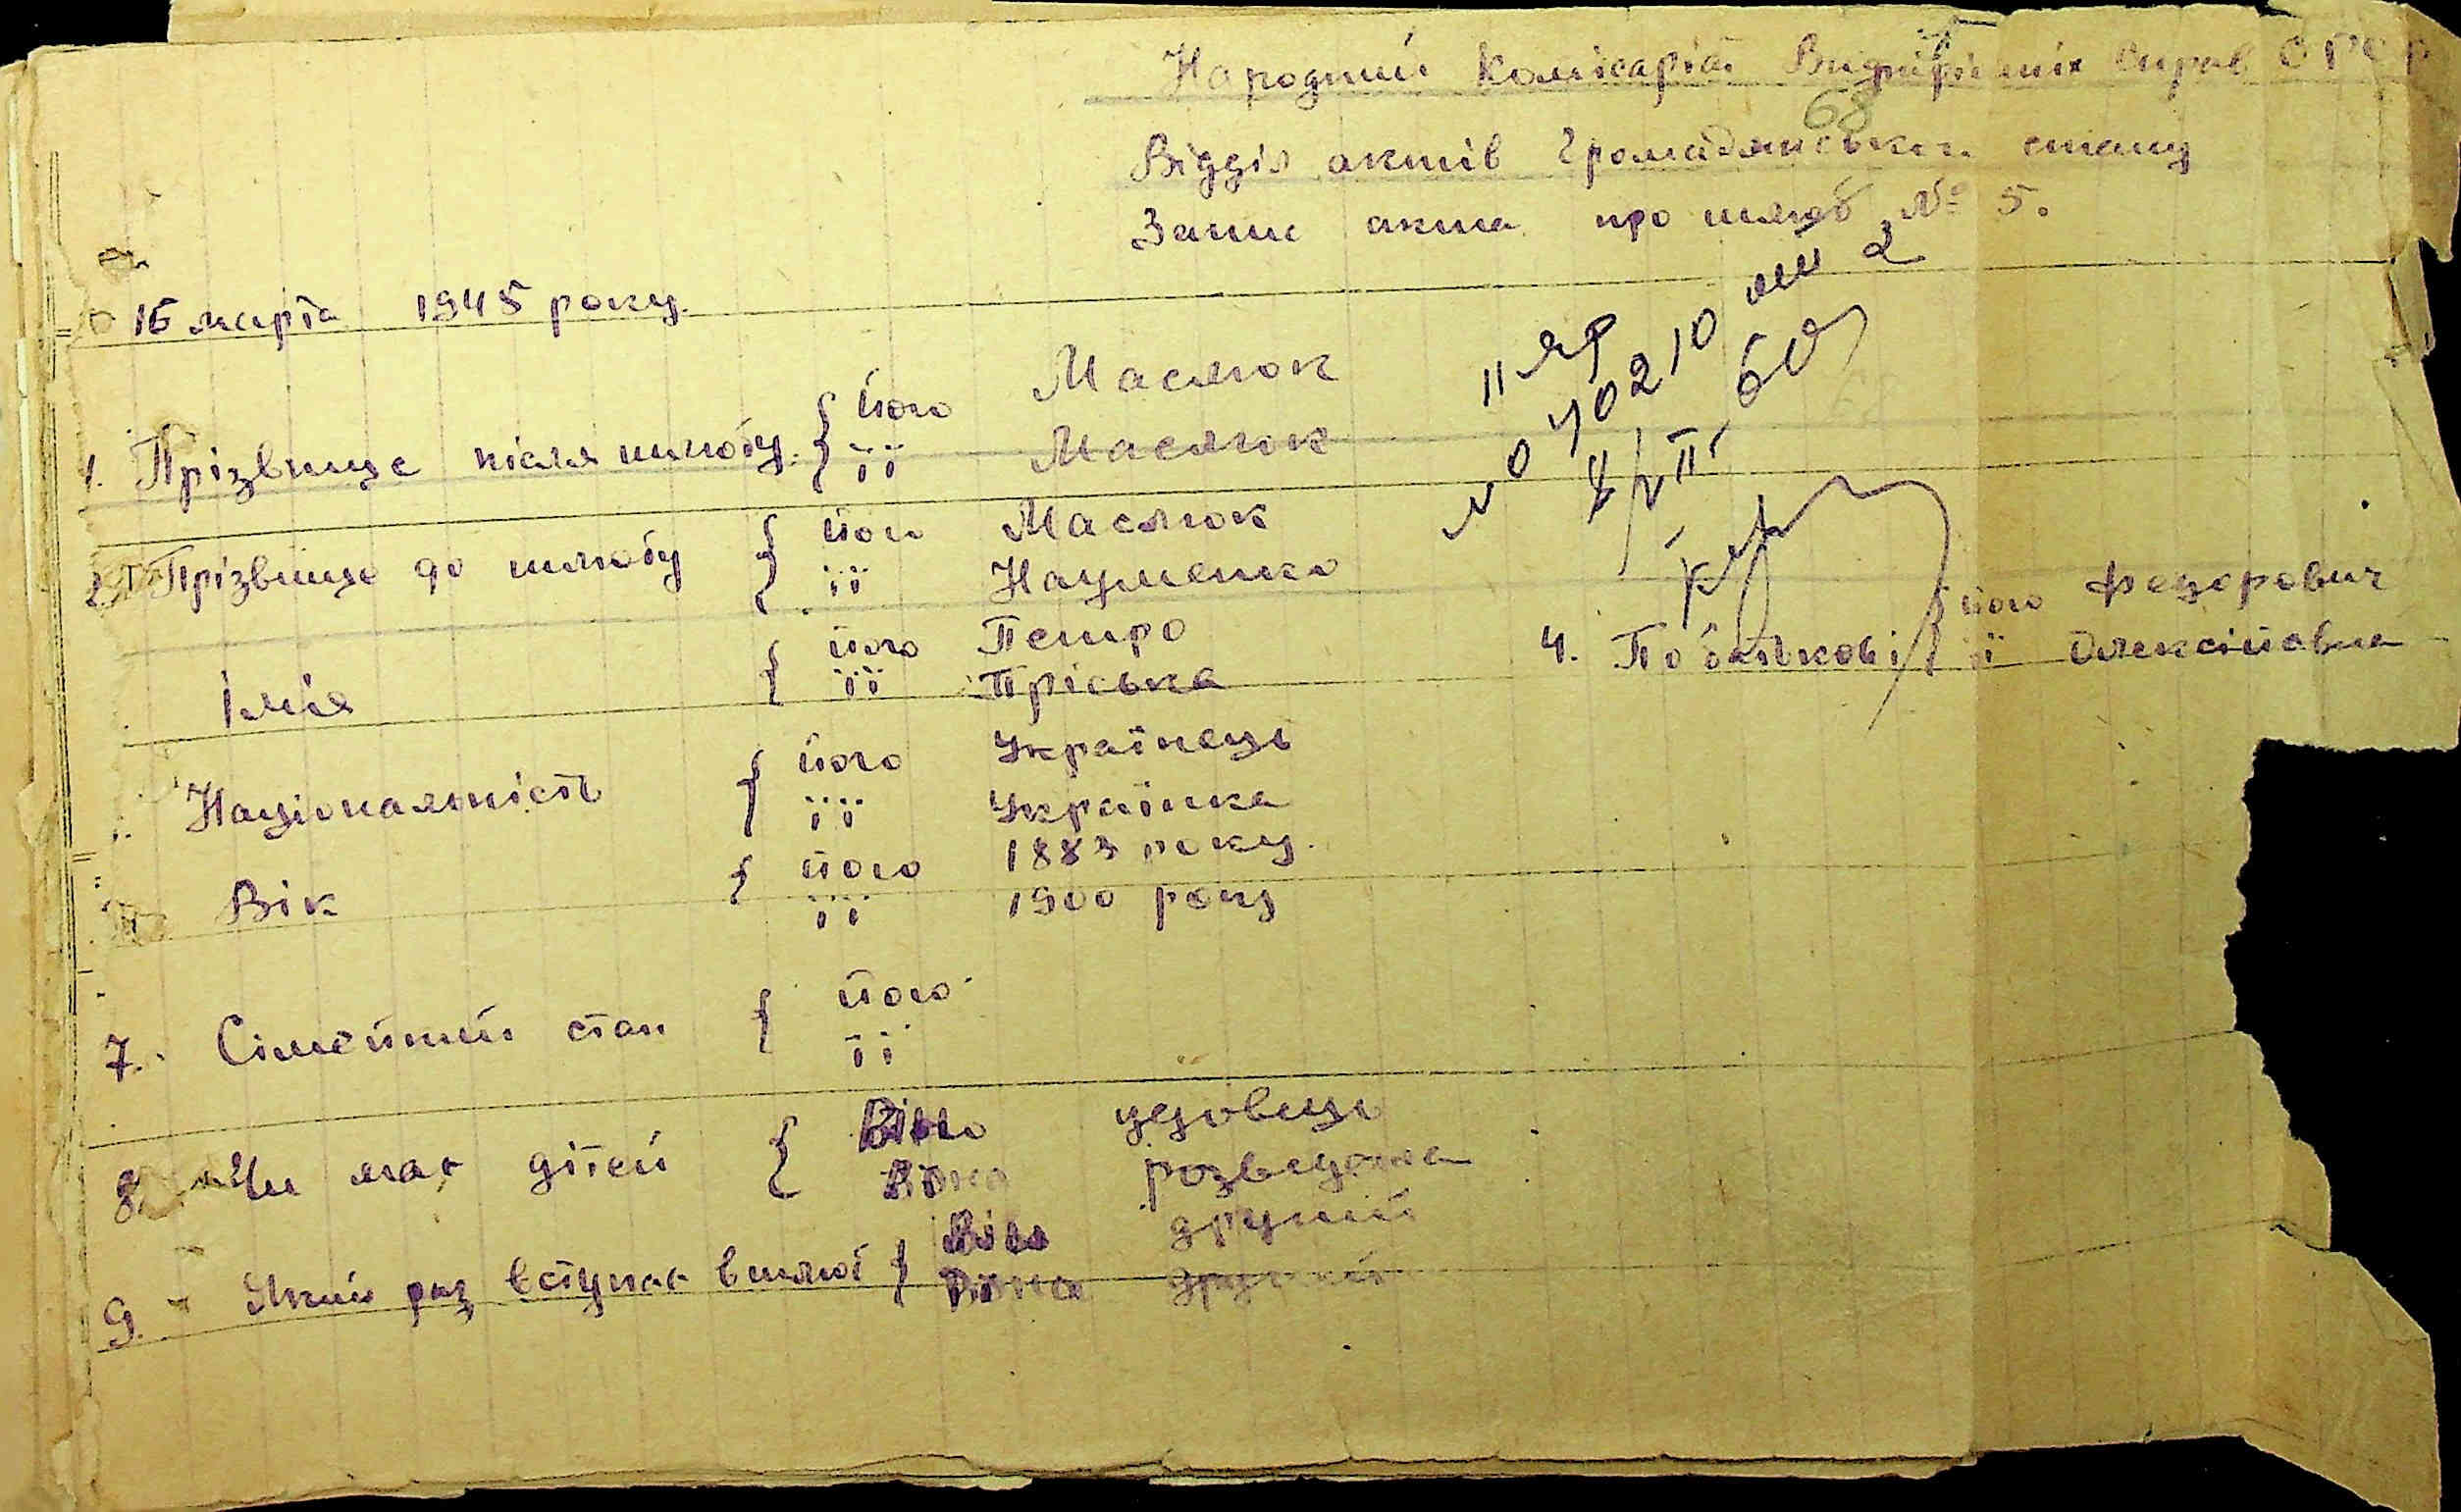 Народний Комісаріат Внутрішніх Справ СРСР
68
Відділ актів Громадянського стану
Запис акта про шлюб № 5.
16 марта 1945 року.
1. Прізвище після шлюбу: { його Маслюк
її Маслюк
2. Прізвище до шлюбу { його Маслюк
її Науменко
Імія { його Петро
її Пріська
4. По батькові { його Федорович
її Олексіївна
Національність { його Українець
її Українка
Вік { його 1883 року.
її 1900 року
7. Сімейний стан { його
її
8. Чи має дітей { Він удовець
Вона розведена
9. Який раз вступає в шлюб { Він другий
Вона другий
II ЯР
№ 040210
60